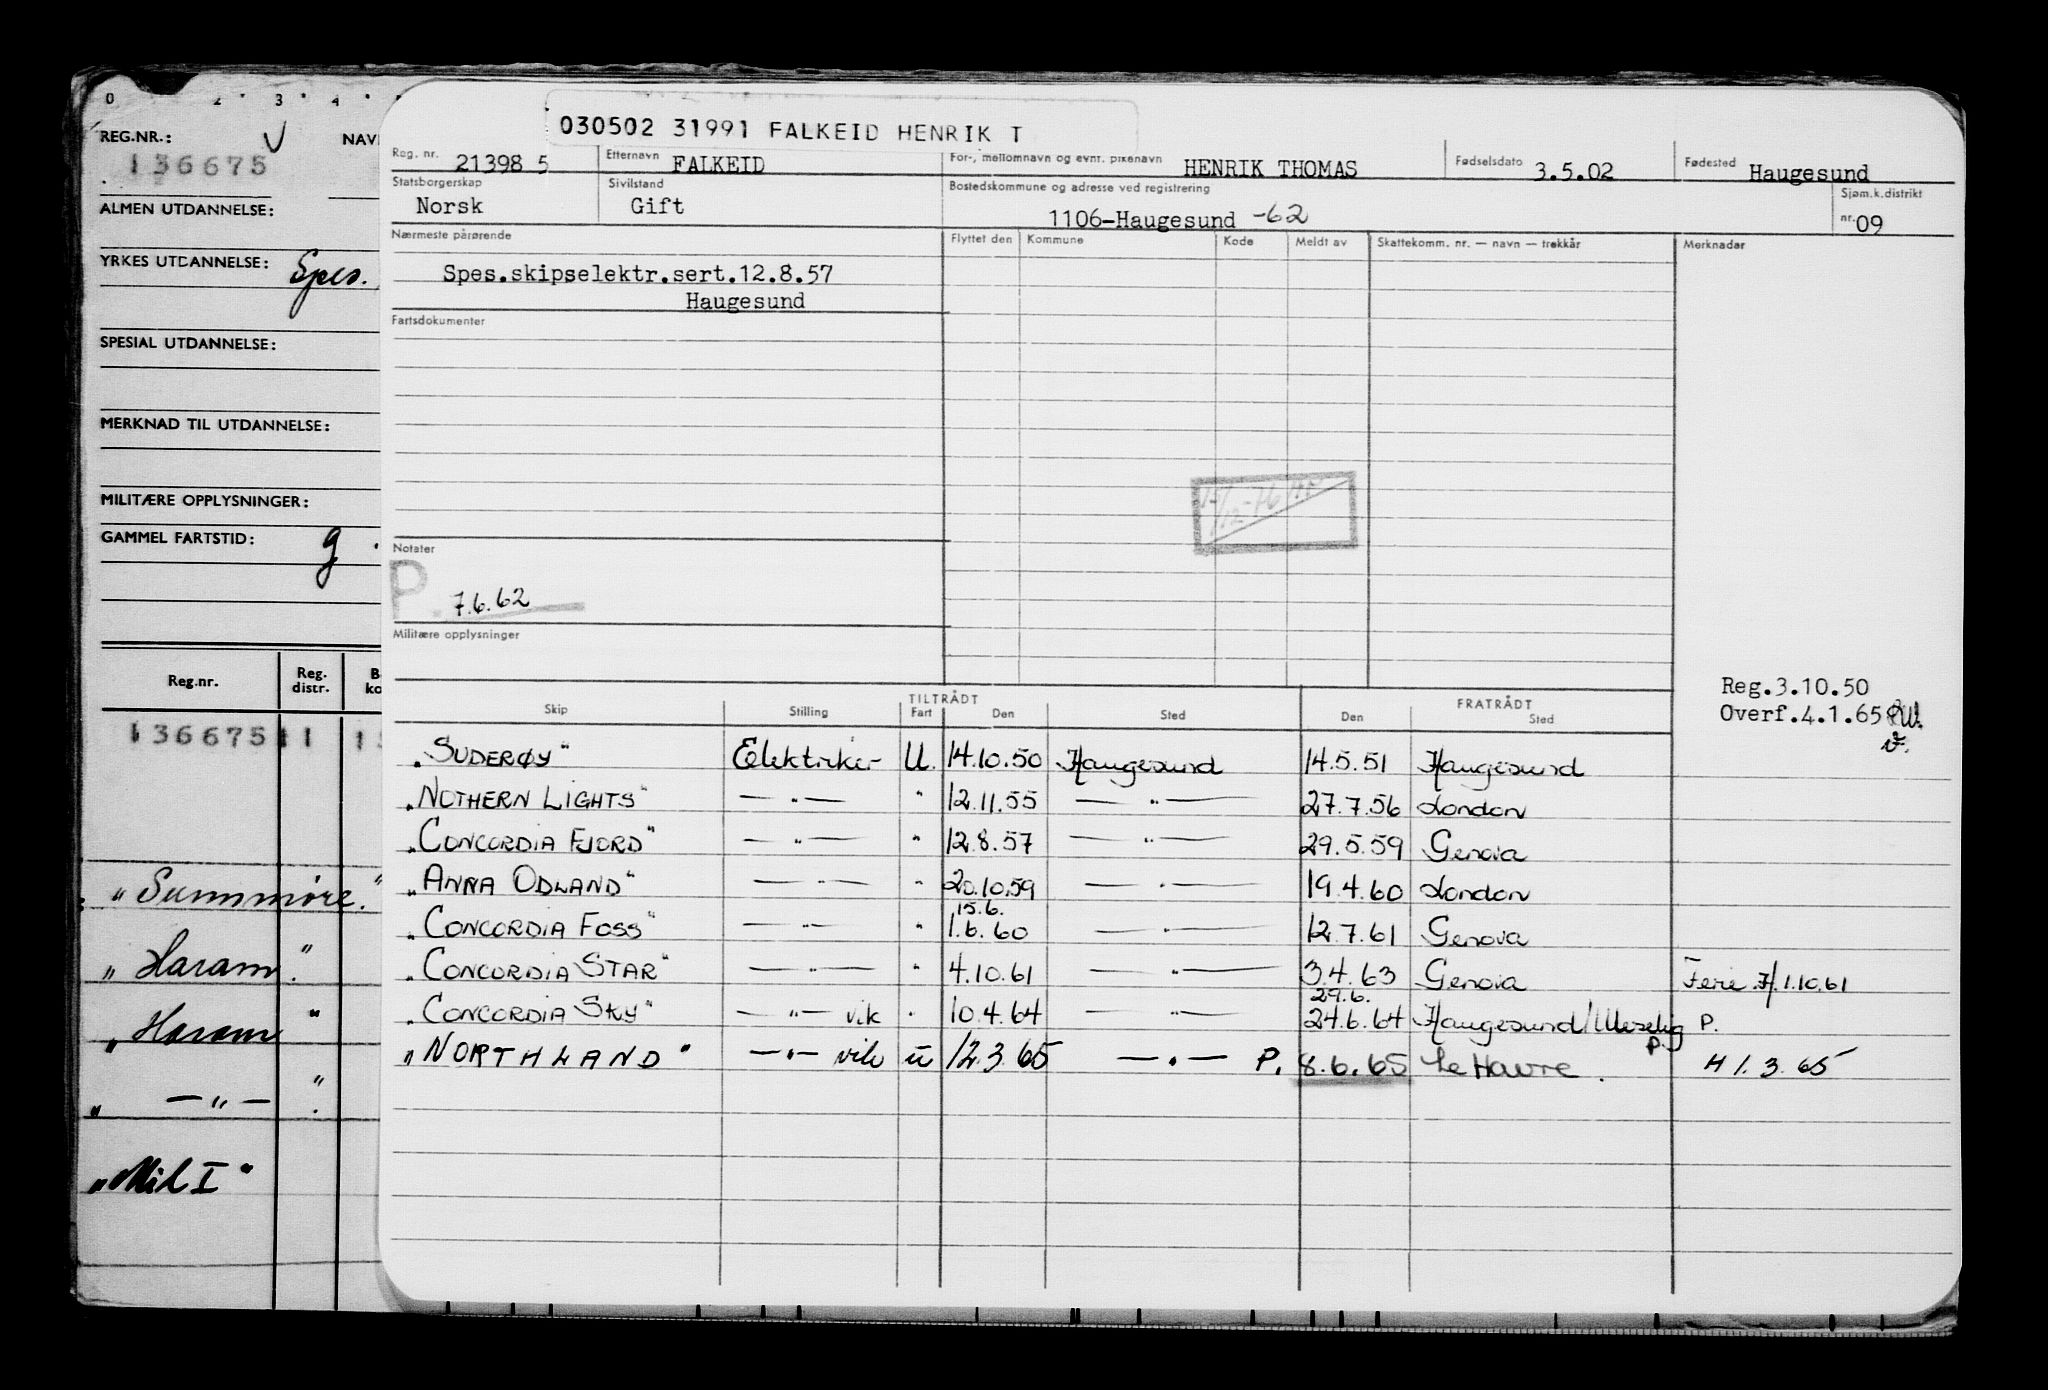 0 2 3 4
REG.NR.: V NAV
136675
ALMEN UTDANNELSE:
YRKES UTDANNELSE: Spes.
SPESIAL UTDANNELSE:
MERKNAD TIL UTDANNELSE:
MILITÆRE OPPLYSNINGER:
GAMMEL FARTSTID: g.
Reg.nr. Reg. distr.
136675 11
"Sunnmöre."
"Haram."
"Haram"
" —"— "
"Mil I"
030502 31991 FALKEID HENRIK T
Reg. nr. 21398 5 Etternavn FALKEID For-, mellomnavn og evnt. pikenavn HENRIK THOMAS Fødselsdato 3.5.02 Fødested Haugesund
Statsborgerskap Norsk Sivilstand Gift Bostedskommune og adresse ved registrering 1106-Haugesund -62 Sjøm.k.distrikt nr. 09
Nærmeste pårørende Flyttet den Kommune Kode Meldt av Skattekomm. nr. — navn — trekkår Merknader
Spes.skipselektr.sert.12.8.57
Haugesund
Fartsdokumenter
Notater
P. 7.6.62
Militære opplysninger
Reg.3.10.50
Overf.4.1.65
TILTRÅDT FRATRÅDT
Skip Stilling Fart Den Sted Den Sted
"SUDERØY" Elektriker U. 14.10.50 Haugesund 14.5.51 Haugesund
"NOTHERN LIGHTS" —"— " 12.11.55 —"— 27.7.56 London
"CONCORDIA FJORD" —"— " 12.8.57 —"— 29.5.59 Genova
"ANNA ODLAND" —"— " 20.10.59 —"— 19.4.60 London
15.6.
"CONCORDIA FOSS" —"— " 1.6.60 —"— 12.7.61 Genova
"CONCORDIA STAR" —"— " 4.10.61 —"— 3.4.63 Genova Ferie 1.10.61
29.6.
"CONCORDIA SKY" —"— vik " 10.4.64 —"— 24.6.64 Haugesund/ P.
P.
"NORTHLAND" —"— vik u 12.3.65 —"— P. 8.6.65 Le Havre. H 1.3.65